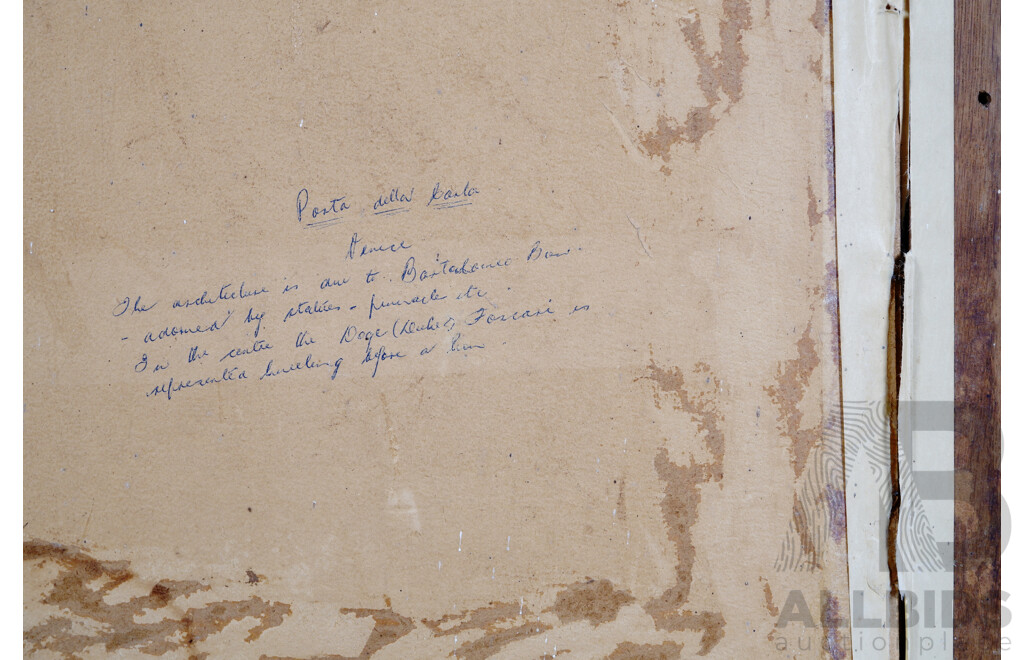 Porta della Carta
Venice
The architecture is due to Bartolomeo Bon.
- adorned by statues - pinnacles etc.
In the centre the Doge (Duke) Foscari is
represented kneeling before a lion
ALLBIDS
auctionplace